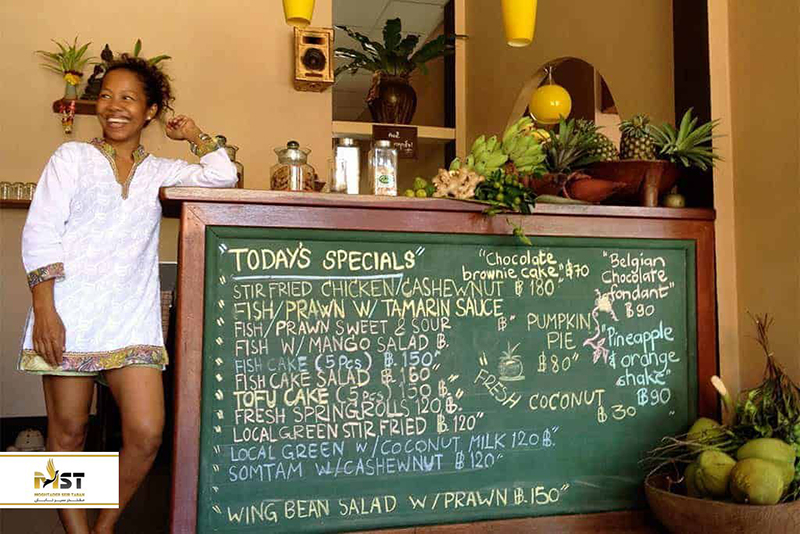 "TODAY'S SPECIALS"
STIR FRIED CHICKEN/CASHEWNUT ฿ 180"
FISH/PRAWN W/ TAMARIN SAUCE
FISH/PRAWN SWEET & SOUR ฿"
FISH W/ MANGO SALAD ฿.
FISH CAKE (5 Pcs) ฿.150"
FISH CAKE SALAD ฿.160"
TOFU CAKE (5 pcs) 150 ฿.
FRESH SPRINGROLLS 120 ฿.
LOCAL GREEN STIR FRIED ฿.120"
LOCAL GREEN W/COCONUT MILK 120 ฿.
SOMTAM W/CASHEWNUT ฿ 120"
"WING BEAN SALAD W/PRAWN ฿.150"
"Chocolate
brownie cake" ฿70
PUMPKIN
PIE
฿80"
"FRESH COCONUT
฿ 30
"Belgian
Chocolate
fondant"
฿90
"Pineapple
& orange
shake"
฿90
MST
MOGHTADER SEIR TABAN
مقتدر سیر تابان